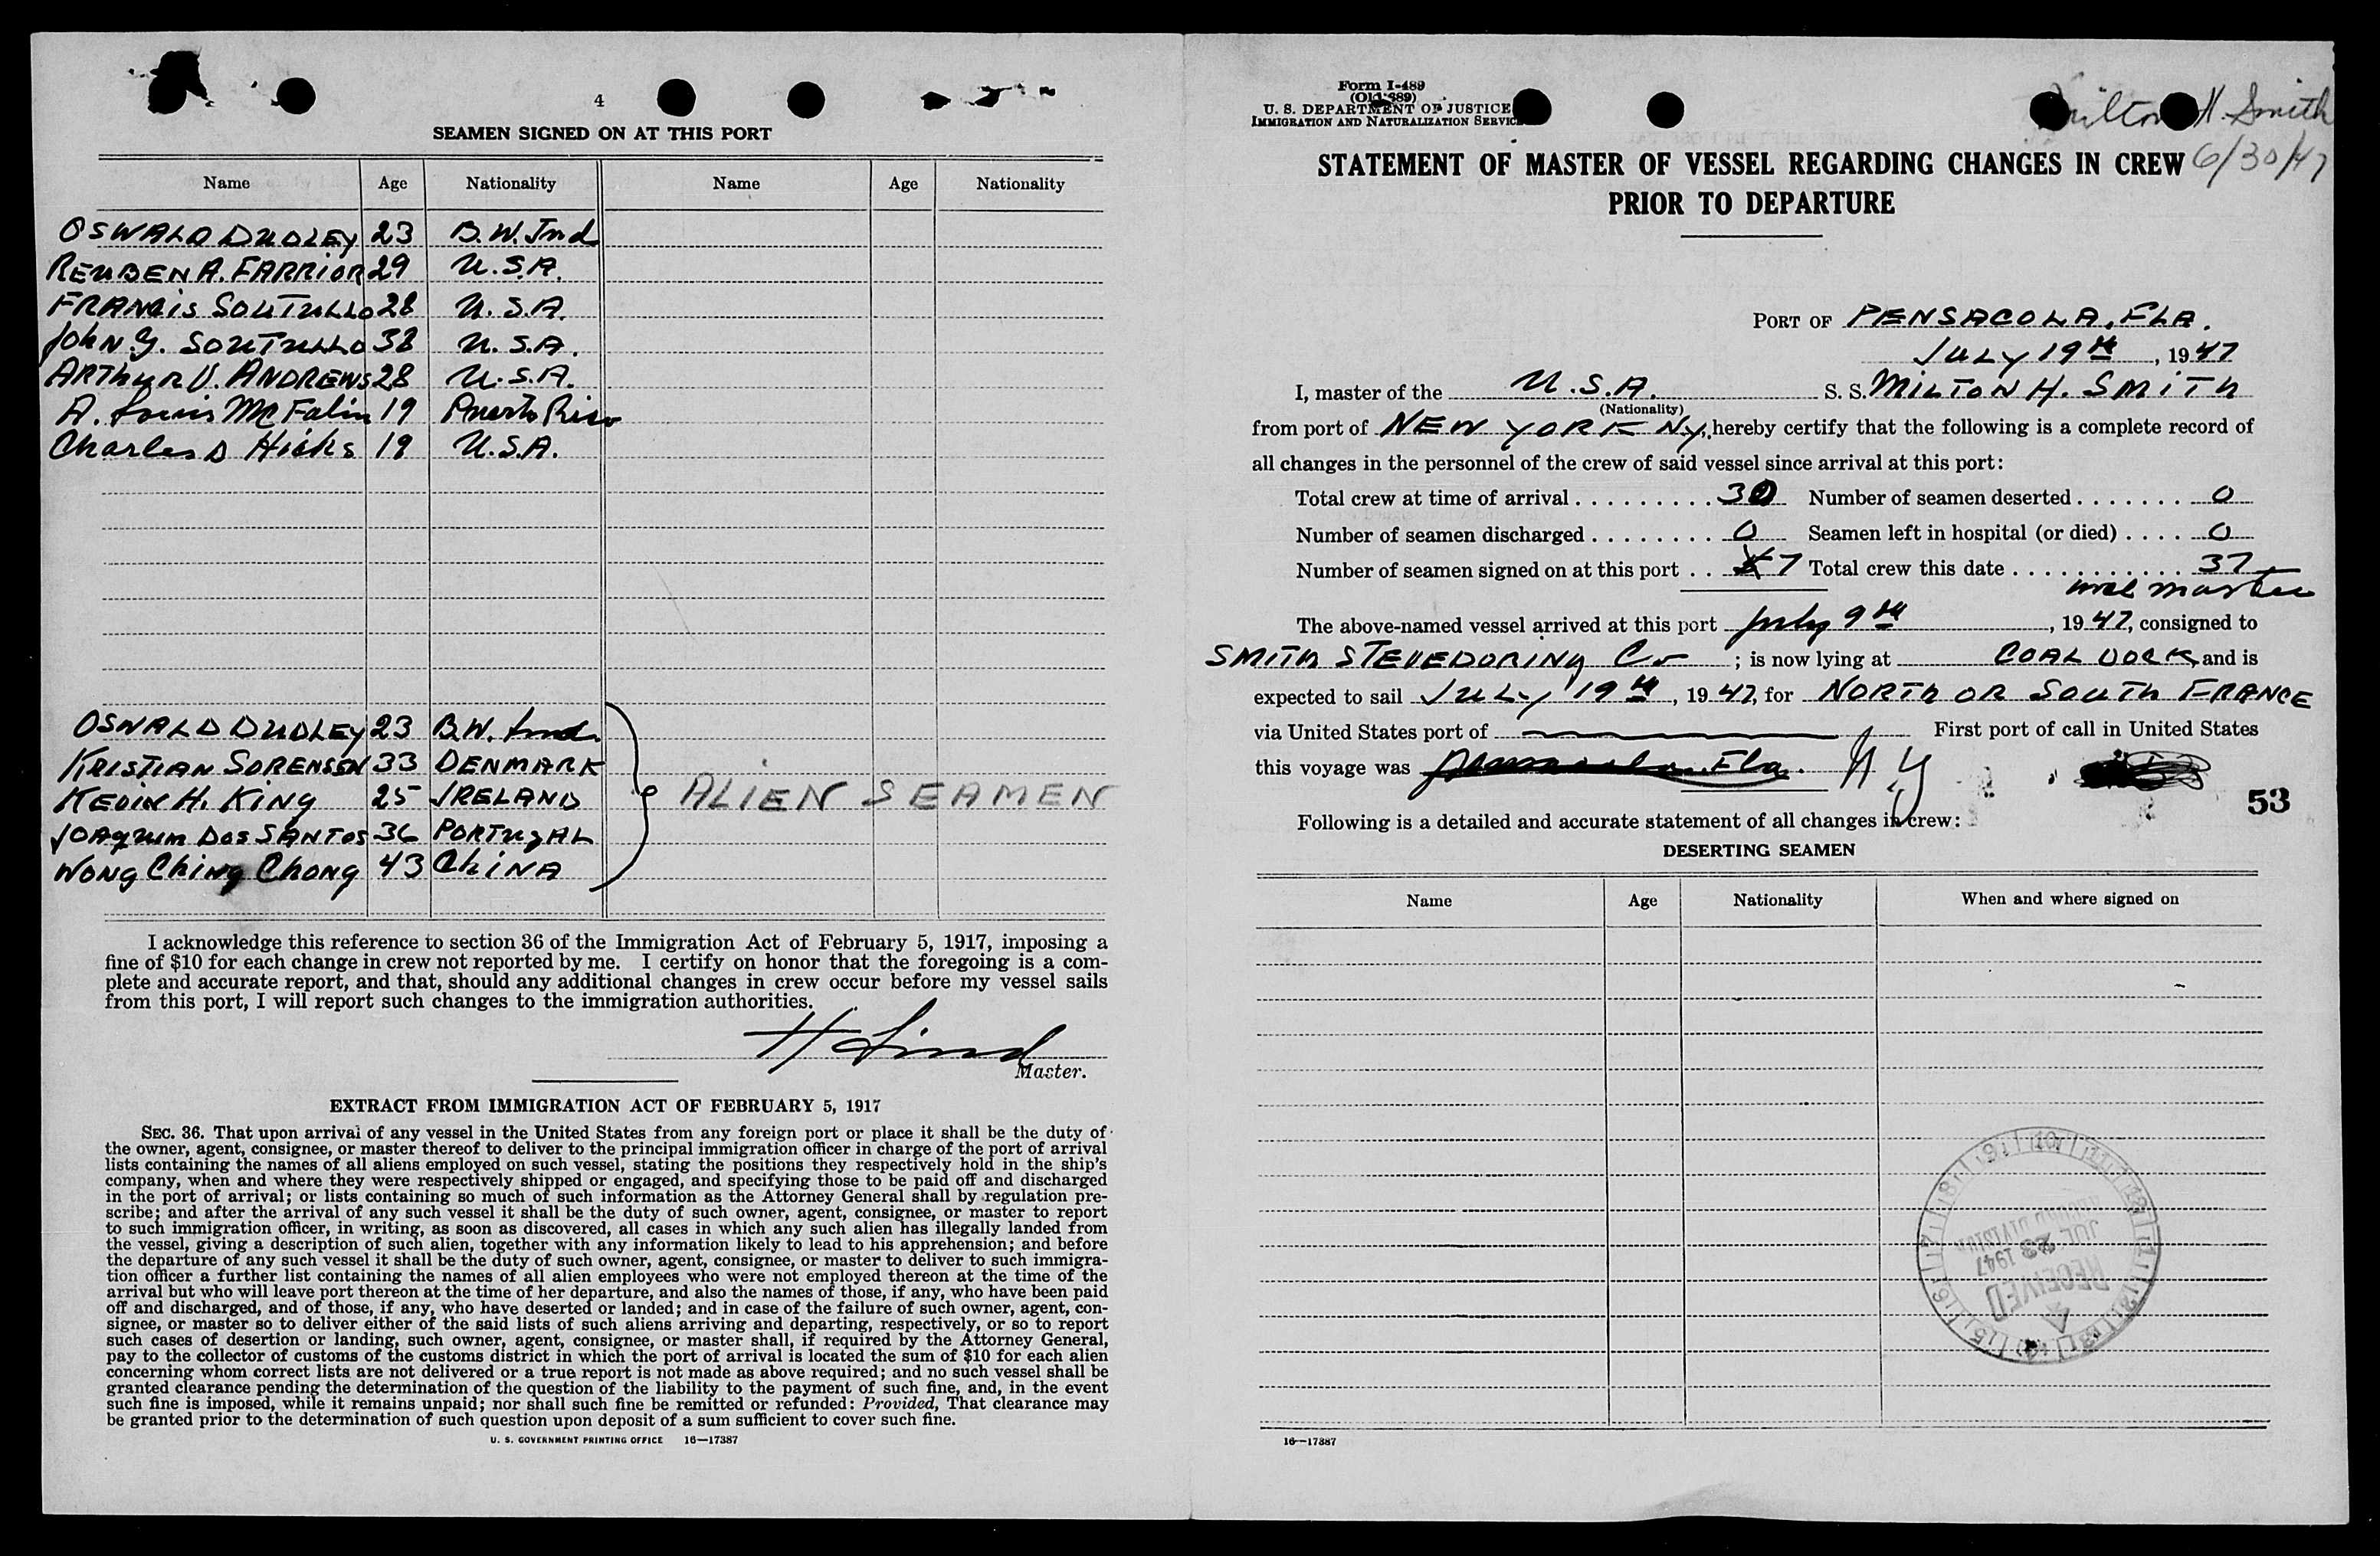 4
SEAMEN SIGNED ON AT THIS PORT
Name Age Nationality Name Age Nationality
OSWALD DUDLEY 23 B.W. Ind
REUBEN A. FARRIOR 29 U.S.A.
FRANCIS SOUTULLO 28 U.S.A.
JOHN G. SOUTULLO 38 U.S.A.
ARTHUR V. ANDREWS 28 U.S.A.
A. Louis McFalin 19 Puerto Rico
Charles D Hicks 19 U.S.A.
OSWALD DUDLEY 23 B.W. Ind.
KRISTIAN SORENSEN 33 DENMARK
KEVIN H. KING 25 IRELAND
ALIEN SEAMEN
JOAQUIM DOS SANTOS 36 PORTUGAL
WONG Ching Chong 43 CHINA
I acknowledge this reference to section 36 of the Immigration Act of February 5, 1917, imposing a
fine of $10 for each change in crew not reported by me. I certify on honor that the foregoing is a com-
plete and accurate report, and that, should any additional changes in crew occur before my vessel sails
from this port, I will report such changes to the immigration authorities.
H Lind
Master.
EXTRACT FROM IMMIGRATION ACT OF FEBRUARY 5, 1917
SEC. 36. That upon arrival of any vessel in the United States from any foreign port or place it shall be the duty of
the owner, agent, consignee, or master thereof to deliver to the principal immigration officer in charge of the port of arrival
lists containing the names of all aliens employed on such vessel, stating the positions they respectively hold in the ship's
company, when and where they were respectively shipped or engaged, and specifying those to be paid off and discharged
in the port of arrival; or lists containing so much of such information as the Attorney General shall by regulation pre-
scribe; and after the arrival of any such vessel it shall be the duty of such owner, agent, consignee, or master to report
to such immigration officer, in writing, as soon as discovered, all cases in which any such alien has illegally landed from
the vessel, giving a description of such alien, together with any information likely to lead to his apprehension; and before
the departure of any such vessel it shall be the duty of such owner, agent, consignee, or master to deliver to such immigra-
tion officer a further list containing the names of all alien employees who were not employed thereon at the time of the
arrival but who will leave port thereon at the time of her departure, and also the names of those, if any, who have been paid
off and discharged, and of those, if any, who have deserted or landed; and in case of the failure of such owner, agent, con-
signee, or master so to deliver either of the said lists of such aliens arriving and departing, respectively, or so to report
such cases of desertion or landing, such owner, agent, consignee, or master shall, if required by the Attorney General,
pay to the collector of customs of the customs district in which the port of arrival is located the sum of $10 for each alien
concerning whom correct lists are not delivered or a true report is not made as above required; and no such vessel shall be
granted clearance pending the determination of the question of the liability to the payment of such fine, and, in the event
such fine is imposed, while it remains unpaid; nor shall such fine be remitted or refunded: Provided, That clearance may
be granted prior to the determination of such question upon deposit of a sum sufficient to cover such fine.
U. S. GOVERNMENT PRINTING OFFICE 16—17387
Form I-489
(Old 689)
U. S. DEPARTMENT OF JUSTICE
IMMIGRATION AND NATURALIZATION SERVICE
Milton H. Smith
6/30/47
STATEMENT OF MASTER OF VESSEL REGARDING CHANGES IN CREW
PRIOR TO DEPARTURE
PORT OF PENSACOLA, FLA.
JULY 19th, 1947
I, master of the U.S.A. S. S. MILTON H. SMITH
(Nationality)
from port of NEW YORK NY, hereby certify that the following is a complete record of
all changes in the personnel of the crew of said vessel since arrival at this port:
Total crew at time of arrival . . . . . . . . . 30 Number of seamen deserted . . . . . . . 0
Number of seamen discharged . . . . . . . . 0 Seamen left in hospital (or died) . . . . 0
Number of seamen signed on at this port . . 7 Total crew this date . . . . . . . . . . . 37
incl master
The above-named vessel arrived at this port July 9th, 1947, consigned to
SMITH STEVEDORING Co ; is now lying at COAL DOCK and is
expected to sail JULY 19th, 1947, for NORTH OR SOUTH FRANCE
via United States port of First port of call in United States
this voyage was Pensacola Fla. N.Y
53
Following is a detailed and accurate statement of all changes in crew:
DESERTING SEAMEN
Name Age Nationality When and where signed on
RECEIVED
JUL 23 1947
16—17387